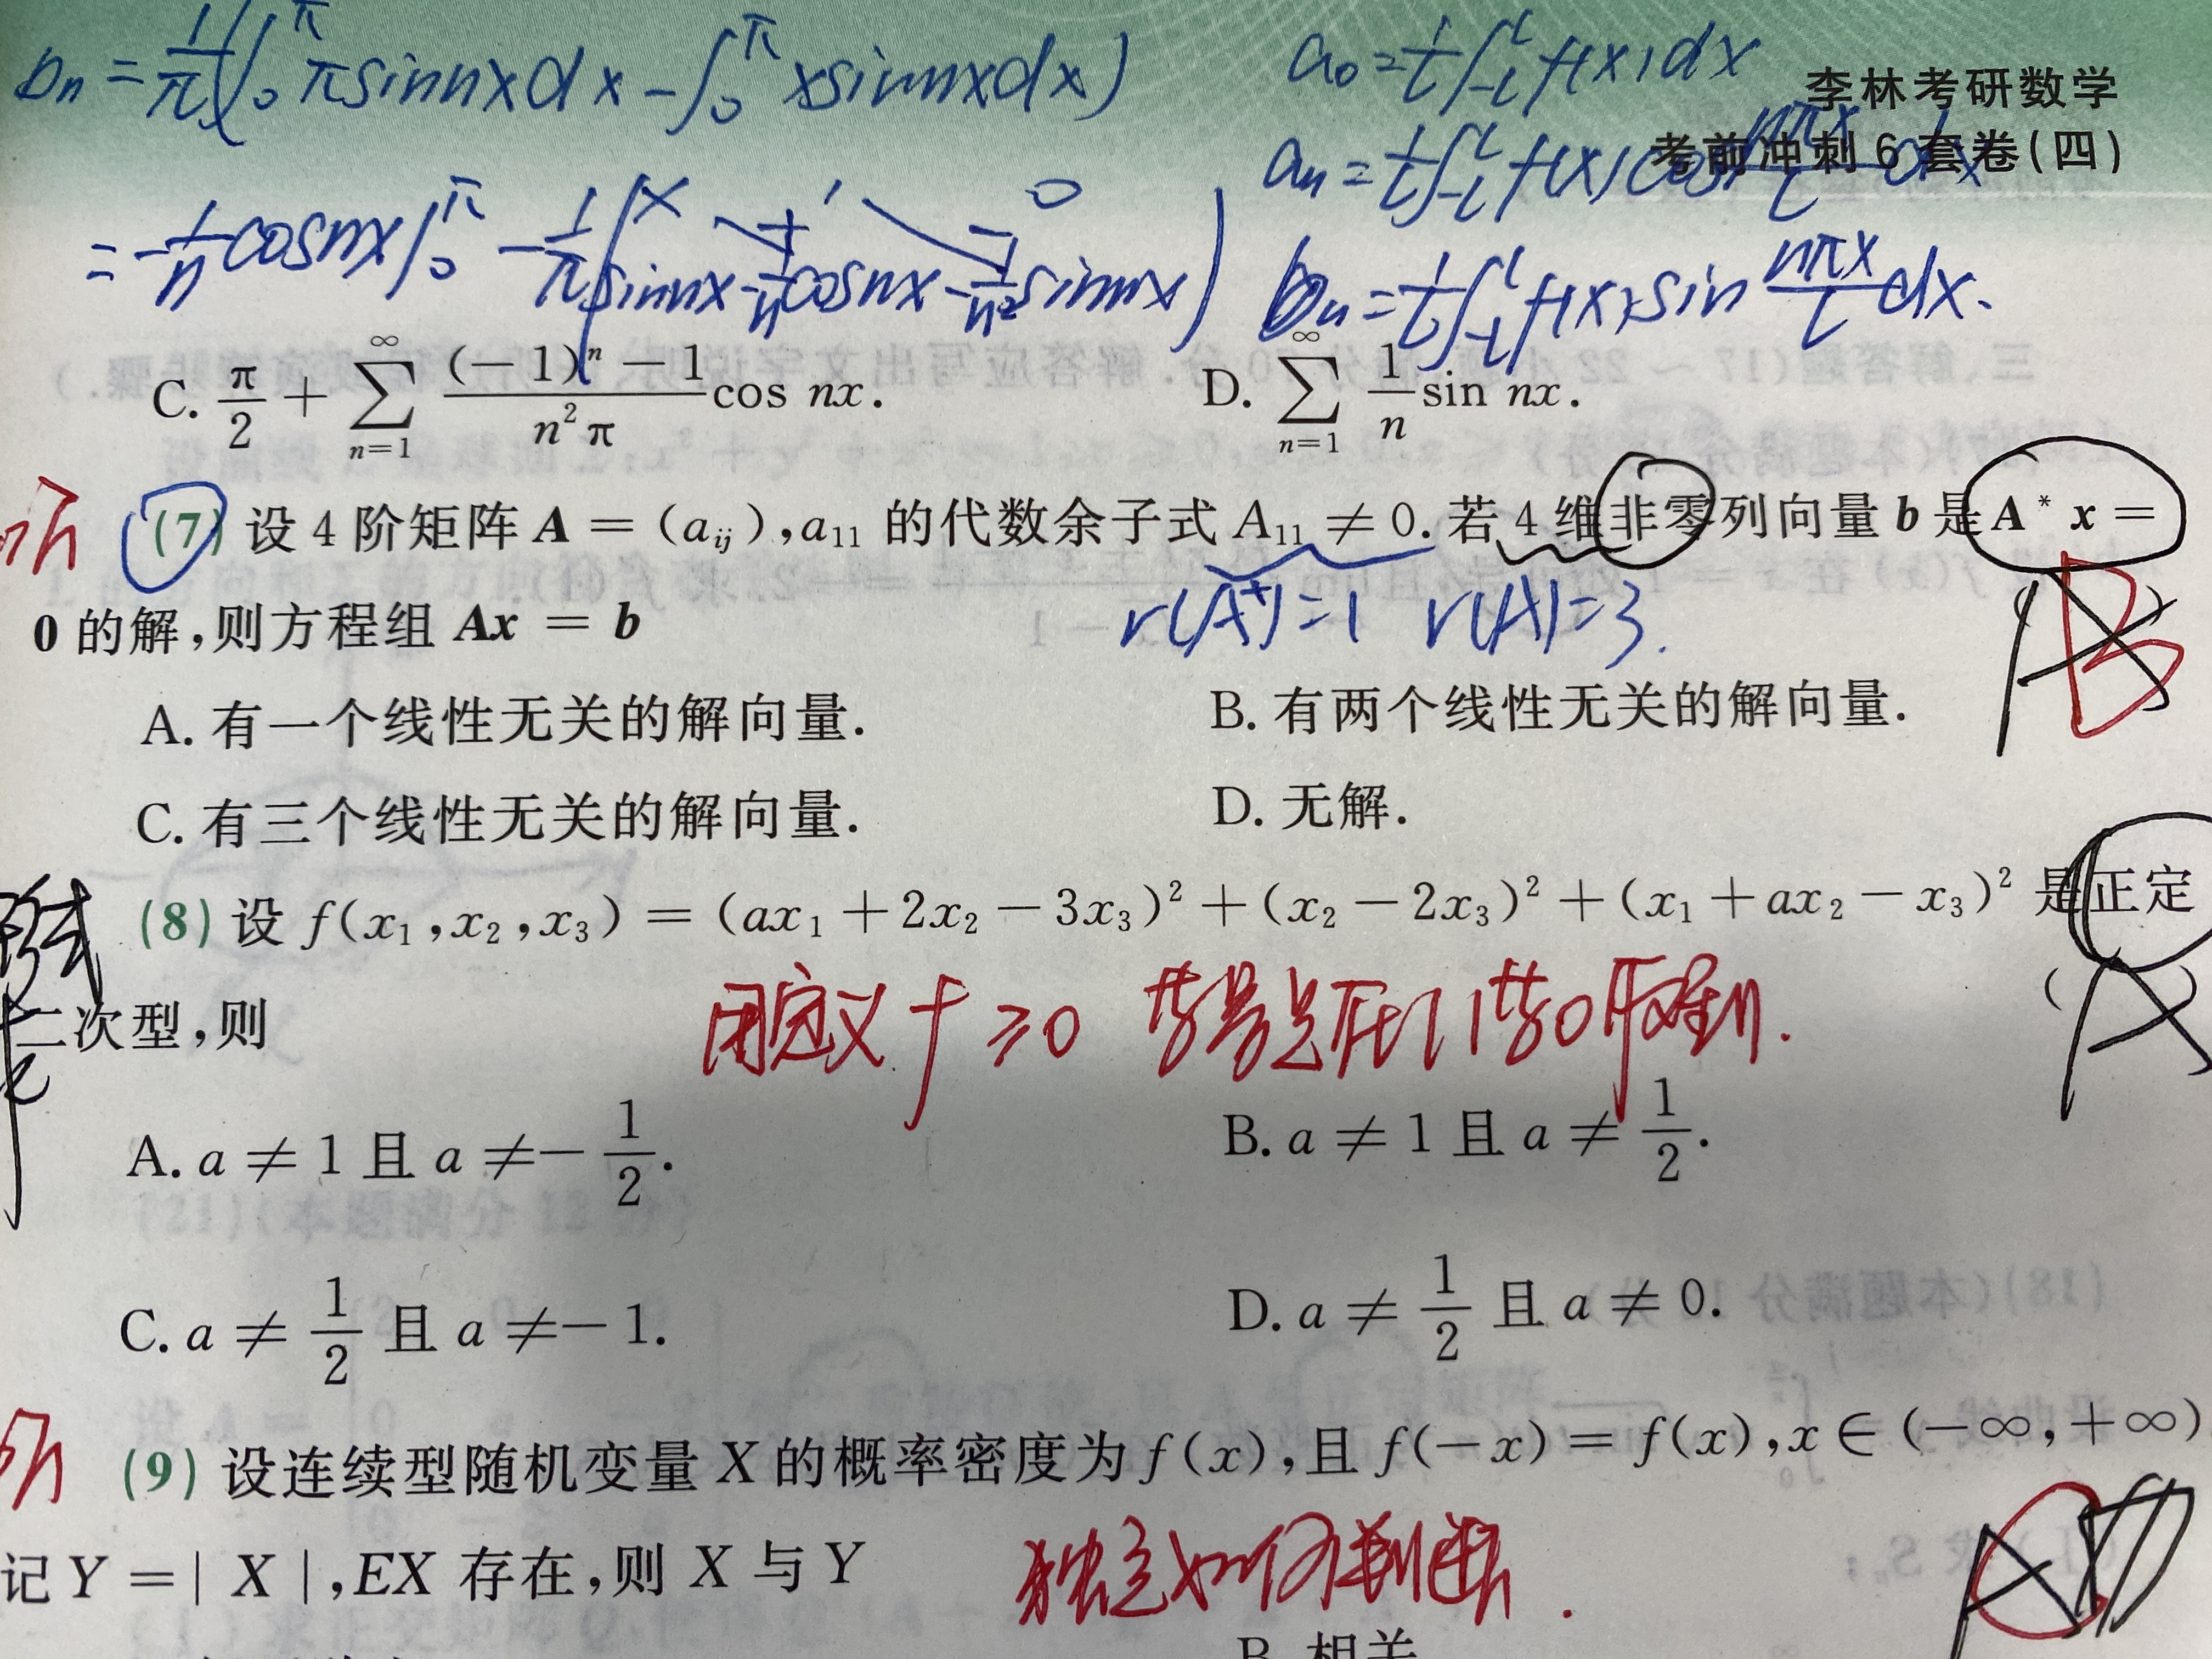 bn = 1/π(∫₀^π πsinnxdx − ∫₀^π xsinnxdx)
a₀ = 1/l ∫₋l^l f(x)dx
李林考研数学
考前冲刺6套卷(四)
an = 1/l ∫₋l^l f(x)cos nπx/l dx
= −1/n cosnx|₀^π − 1/π(x 1 0
sinnx −1/n cosnx −1/n² sinnx)
bn = 1/l ∫₋l^l f(x)sin nπx/l dx.
C. π/2 + ∑_{n=1}^{∞} ((−1)ⁿ−1)/(n²π) cos nx. D. ∑_{n=1}^{∞} 1/n sin nx.
(7) 设 4 阶矩阵 A = (a_ij), a₁₁ 的代数余子式 A₁₁ ≠ 0. 若 4 维非零列向量 b 是 A* x =
0 的解,则方程组 Ax = b
r(A*)=1 r(A)=3.
B
A. 有一个线性无关的解向量. B. 有两个线性无关的解向量.
C. 有三个线性无关的解向量. D. 无解.
(8) 设 f(x₁,x₂,x₃) = (ax₁+2x₂−3x₃)²+(x₂−2x₃)²+(x₁+ax₂−x₃)² 是正定
二次型,则
用定义 f ≥0
( A )
A. a ≠ 1 且 a ≠ −1/2. B. a ≠ 1 且 a ≠ 1/2.
C. a ≠ 1/2 且 a ≠ −1. D. a ≠ 1/2 且 a ≠ 0.
(9) 设连续型随机变量 X 的概率密度为 f(x),且 f(−x) = f(x),x ∈ (−∞,+∞)
记 Y = | X |,EX 存在,则 X 与 Y
独立如何判断.
B. 相关